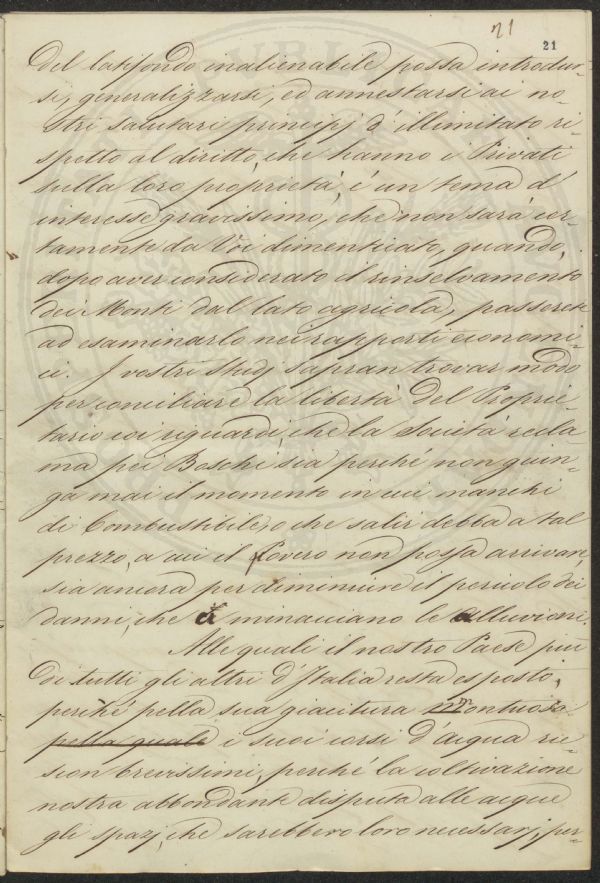 21
21
del latifondo inalienabile, possa introdur-
si, generalizzarsi, ed annestarsi ai no-
stri salutari principj d'illimitato ri-
spetto al diritto, che hanno i Privati
sulla loro proprietà, è un tema d'
interesse gravissimo, che non sarà cer-
tamente da Voi dimenticato, quando,
dopo aver considerato il rinselvamento
dei Monti dal lato agricola, passerete
ad esaminarlo nei rapporti economi-
ci. I vostri studj sapran trovar modo
per conciliare la libertà del Proprie-
tario coi riguardi, che la Società recla-
ma pei Boschi sia perché non giun-
ga mai il momento in cui manchi
di Combustibile, o che salir debba a tal
prezzo, a cui il Povero non possa arrivare,
sia ancora per diminuire il pericolo dei
danni, che ci minacciano le alluvioni.
Alle quali il nostro Paese più
di tutti gli altri d'Italia resta esposto,
perché pella sua giacitura montuosa
pella quale i suoi corsi d'acqua rie-
scon brevissimi, perché la coltivazione
nostra abbondante disputa alle acque
gli spazj, che sarebbero loro necessarj, per-